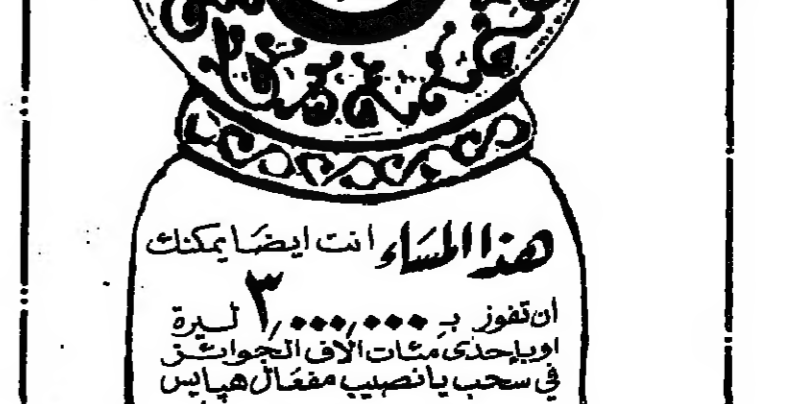 هذا المساء انت ايضا يمكنك
ان تفوز بـ ٣,٠٠٠,٠٠٠ ليرة
او بإحدى مئات الآف الجوائز
في سحب يا نصيب مفعال هبايس